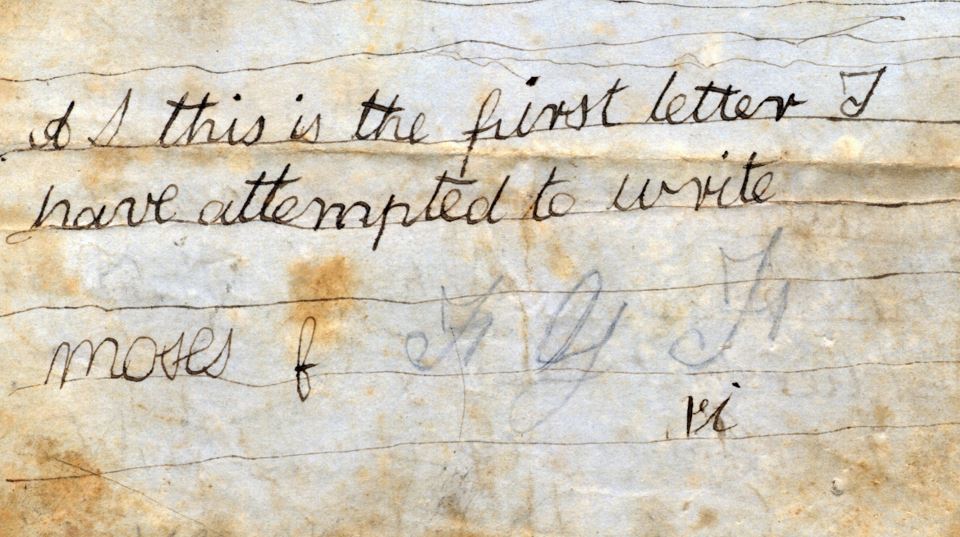 As this is the first letter I
have attempted to write
moses f
ri